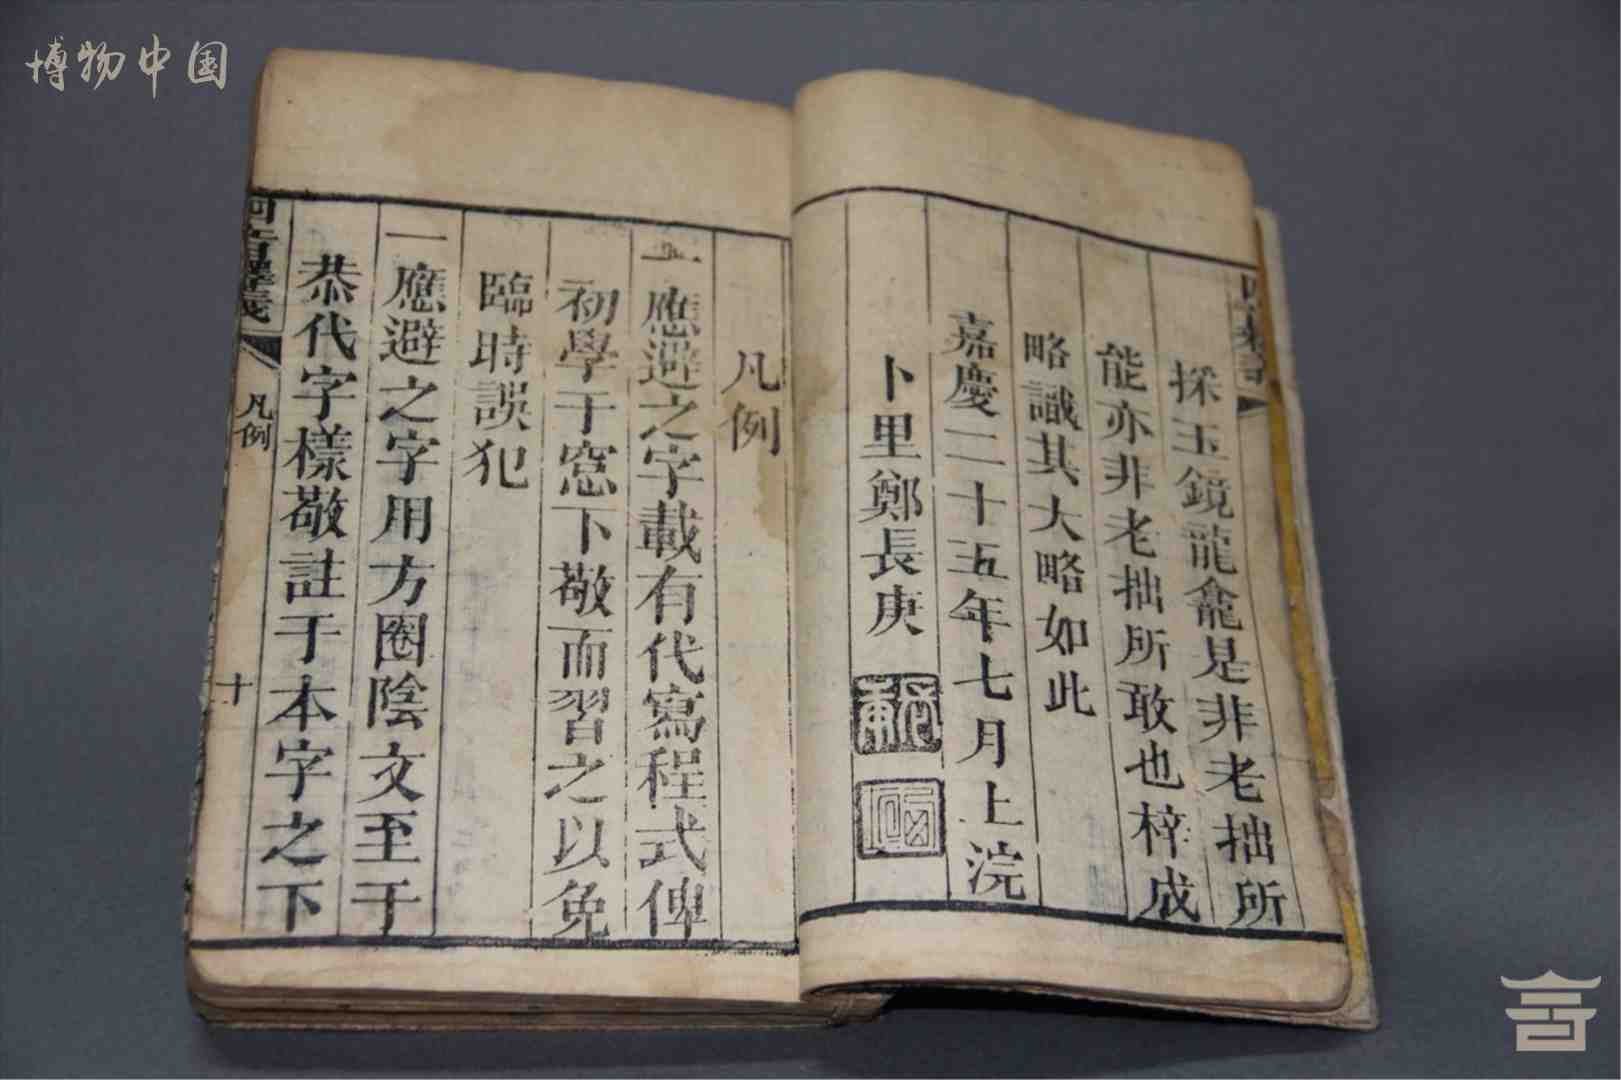 博物中国
採玉鏡龍龕是非老拙所
能亦非老拙所敢也梓成
略識其大略如此
嘉慶二十五年七月上浣
卜里鄭長庚
凡例
一應避之字載有代寫程式俾
初學于窓下敬而習之以免
臨時誤犯
一應避之字用方圈陰文至于
恭代字樣敬註于本字之下
凡例
十